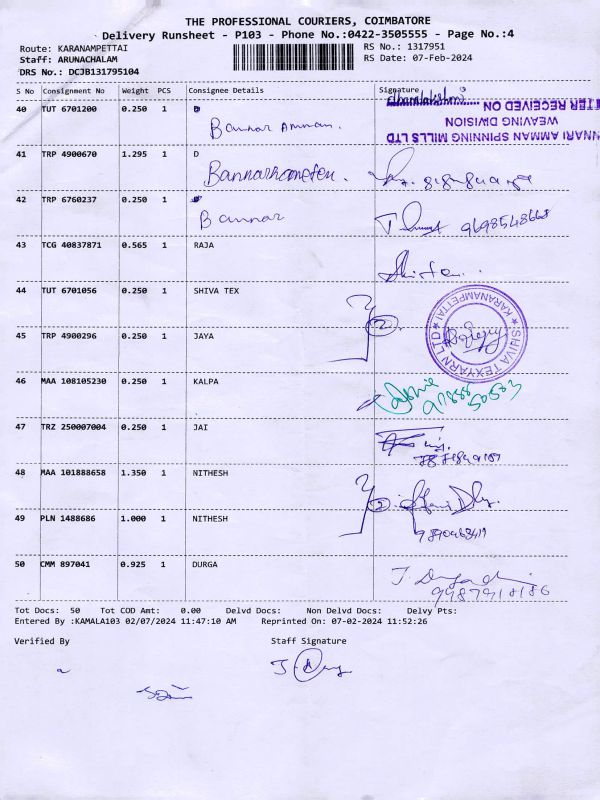 THE PROFESSIONAL COURIERS, COIMBATORE
Delivery Runsheet - P103 - Phone No.:0422-3505555 - Page No.:4
Route: KARANAMPETTAI RS No.: 1317951
Staff: ARUNACHALAM RS Date: 07-Feb-2024
DRS No.: DCJB131795104
S No Consignment No Weight PCS Consignee Details Signature
dhanalakshmi
40 TUT 6701200 0.250 1 D
Bannar Amman.
NNARI AMMAN SPINNING MILLS LTD
WEAVING DIVISION
TTER RECEIVED ON
41 TRP 4900670 1.295 1 D
42 TRP 6760237 0.250 1
Bannar 9698548668
43 TCG 40837871 0.565 1 RAJA
44 TUT 6701056 0.250 1 SHIVA TEX
2
SHIVA TEXYARN LTD KARANAMPETTAI
45 TRP 4900296 0.250 1 JAYA
46 MAA 108105230 0.250 1 KALPA
47 TRZ 250007004 0.250 1 JAI
48 MAA 101888658 1.350 1 NITHESH
2
49 PLN 1488686 1.000 1 NITHESH
50 CMM 897041 0.925 1 DURGA
Tot Docs: 50 Tot COD Amt: 0.00 Delvd Docs: Non Delvd Docs: Delvy Pts:
Entered By :KAMALA103 02/07/2024 11:47:10 AM Reprinted On: 07-02-2024 11:52:26
Verified By Staff Signature